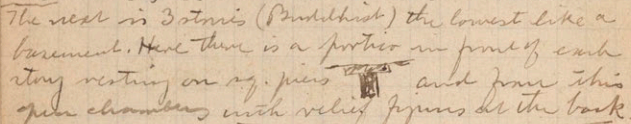 The next is 3 stories (Buddhist) the lowest like a
basement. Here there is a portico in front of each
story resting on sq. piers and from this
open chambers with relief figures at the back